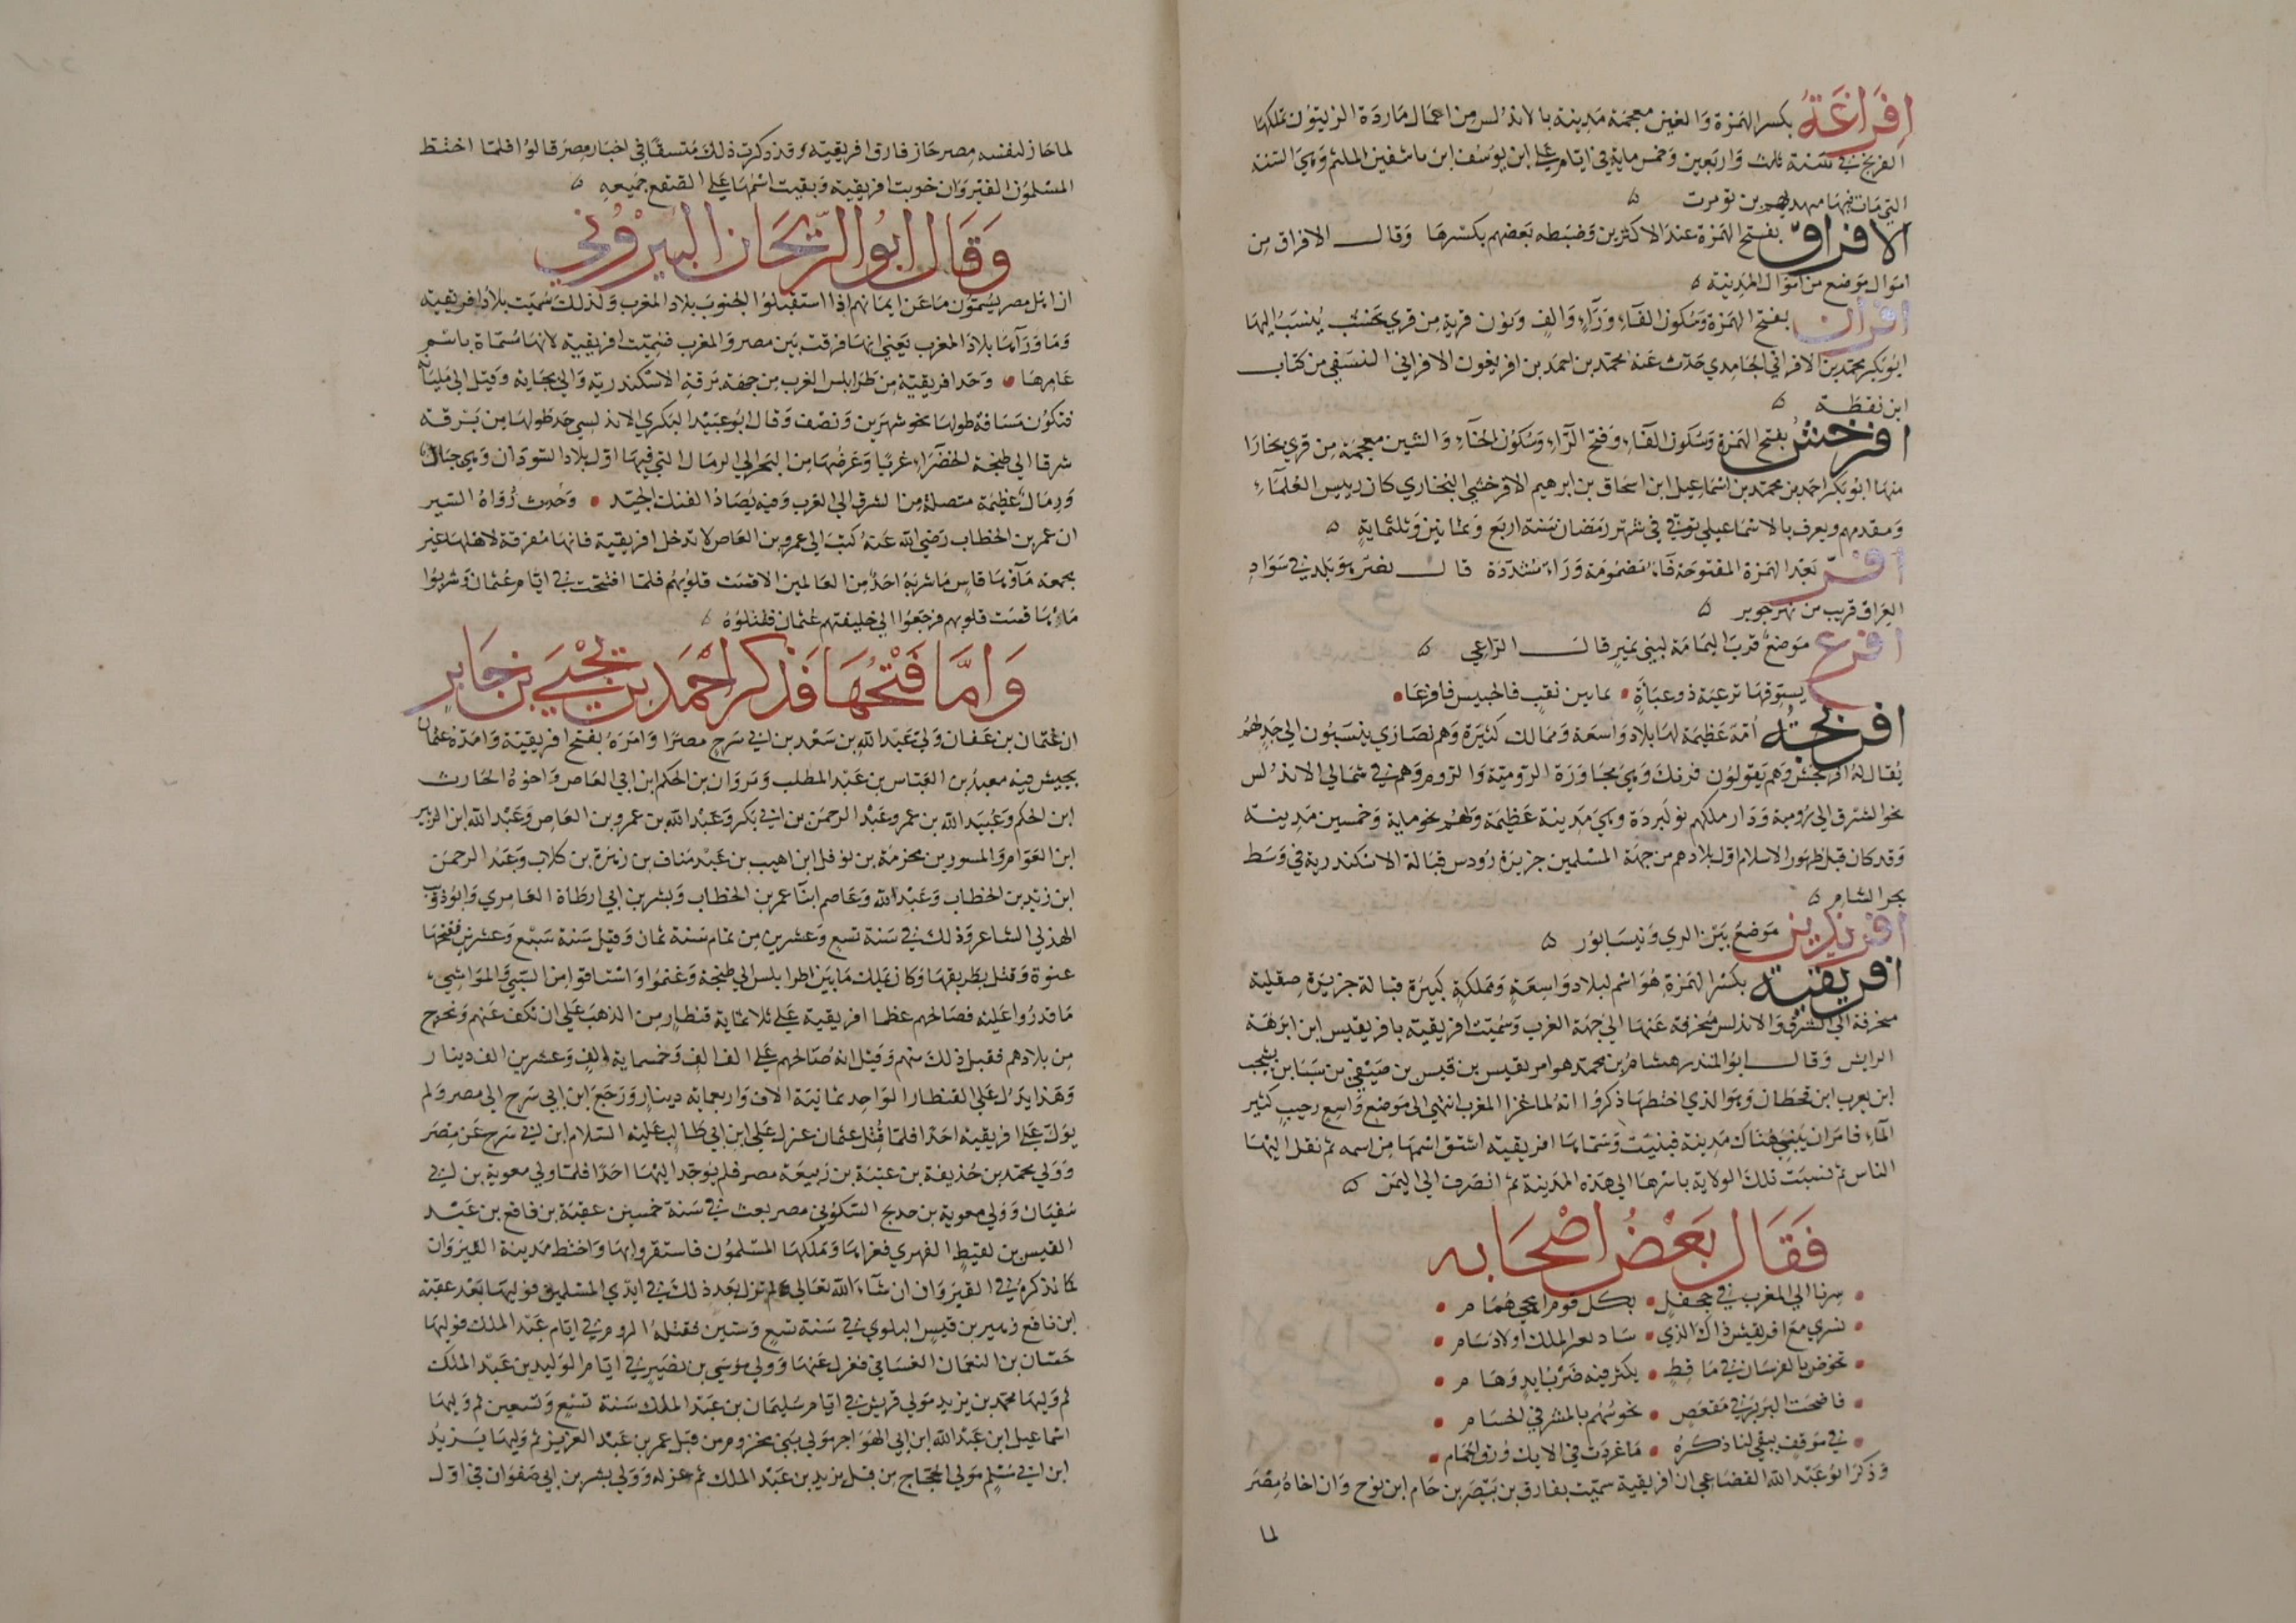 افراغة بكسر الهمزة والغين معجمة مدينة بالاندلس من اعمال ماردة الزيتون تملكها
الفرنج في سنة ثلاث واربعين وخمس ماية في ايام علي ابن يوسف ابن تاشفين الملثم وهي السنة
التي مات فيها مهديهم بن تومرت
الافراق بفتح الهمزة عند الاكثرين وضبطه بعضهم بكسرها وقال الافراق من
اموال موضع من اموال المدينة
افران بفتح الهمزة وسكون الفاء وراء والف ونون قرية من قري نخشب ينسب اليها
ابو بكر محمد بن الافراني الجامدي حدث عنه محمد بن احمد بن افريغون الافراني النسفي من كتاب
ابن نقطة
افرخش بفتح الهمزة وسكون الفاء وفتح الراء وسكون الخاء والشين معجمة من قري بخارا
منها ابو بكر احمد بن محمد بن اسماعيل ابن اسحاق بن ابرهيم الافرخشي البخاري كان رييس العلماء
ومقدمهم ويعرف بالاسماعيلي توفي في شهر رمضان سنة اربع وثمانين وثلثماية
افر بعد الهمزة المفتوحة فاء مضمومة وراء مشددة قال نصر هو بلد في سواد
العراق قريب من نهر جوبر
افرع موضع قرب اليمامة لبني نمير قال الراعي
يسوقها ترعية ذو عباة بما بين نقب فالحبيس فافرعا
افرنجة امة عظيمة لها بلاد واسعة وممالك كثيرة وهم نصاري ينسبون الي جد لهم
يقال له افرنجش وهم يقولون فرنك وهي مجاورة الرومية والروم وهم في شمالي الاندلس
نحو الشرق الي رومية ودار ملكهم نوكبردة وهي مدينة عظيمة ولهم نحو ماية وخمسين مدينة
وقد كان قبل ظهور الاسلام اول بلادهم من جهة المسلمين جزيرة رودس قبالة الاسكندرية في وسط
بحر الشام
افرنديز موضع بين الري ونيسابور
افريقية بكسر الهمزة هو اسم لبلاد واسعة ومملكة كبيرة قبالة جزيرة صقلية
منحرفة الي الشرق والاندلس منحرفة عنها الي جهة الغرب وسميت افريقية بافريقيس ابن ابرهة
الرايش وقال ابو المنذر هشام بن محمد هو امريقيس بن قيس بن صيفي بن سبا بن يشجب
ابن يعرب ابن قحطان وهو الذي اختطها ذكروا انه لما غزا المغرب انتهي الي موضع واسع رحيب كثير
الماء فامر ان يبني هناك مدينة فبنيت وسماها افريقية اشتق اسمها من اسمه ثم نقل اليها
الناس ثم نسبت تلك الولاية باسرها الي هذه المدينة ثم انصرف الي اليمن
فقال بعض اصحابه
سرنا الي المغرب في جحفل بكل قوم اريحي همام
نسري مع افريقيس ذاك الذي ساد بعز الملك اولاد سام
نخوض بالفرسان في ماقط يكثر فيه ضرب ايد وهام
فاضحت البربر في مقعص نحوسهم بالمشرفي الحسام
في موقف يبقي لنا ذكره ما غردت في الايك ورق الحمام
وذكر ابو عبد الله القضاعي ان افريقية سميت بفارق بن بيصر بن حام ابن نوح وان اخاه مصر
لما
لما حاز لنفسه مصر حاز فارق افريقية وقد ذكرت ذلك متسقا في اخبار مصر قالوا فلما اختط
المسلمون القيروان خربت افريقية وبقيت اسمها علي الصقع جميعه
وقال ابو الريحان البيروني
ان اهل مصر يسمون ما عن ايمانهم اذا استقبلوا الجنوب بلاد المغرب ولذلك سميت بلاد افريقية
وما وراها بلاد المغرب يعني انها فرقت بين مصر والمغرب فسميت افريقية لانها مسماة باسم
عامرها وحد افريقية من طرابلس الغرب من جهة برقة الاسكندرية والي بجاية وقيل الي مليانة
فتكون مسافة طولها نحو شهرين ونصف وقال ابو عبيد البكري الاندلسي حد طولها من برقة
شرقا الي طنجة الخضراء غربا وعرضها من البحر الي الرمال التي فيها اول بلاد السودان وهي جبال
ورمال عظيمة متصلة من الشرق الي الغرب وفيه يصاد الفنك الجيد وحدث رواة السير
ان عمر بن الخطاب رضي الله عنه كتب الي عمرو بن العاص لا تدخل افريقية فانها مفرقة لاهلها غير
مجمعة ماؤها قاس ما شربه احد من العالمين الا قست قلوبهم فلما افتتحت في ايام عثمان وشربوا
ماءها قست قلوبهم فرجعوا الي خليفتهم عثمان فقتلوه
واما فتحها فذكر احمد بن يحيي بن جابر
ان عثمان بن عفان ولي عبد الله بن سعد بن ابي سرح مصرا وامره بفتح افريقية وامده عثمان
بجيش فيه معبد بن العباس بن عبد المطلب ومروان بن الحكم ابن ابي العاص واخوه الحارث
ابن الحكم وعبيد الله بن عمر وعبد الرحمن بن ابي بكر وعبد الله بن عمرو بن العاص وعبد الله ابن الزبير
ابن العوام والمسور بن مخرمة بن نوفل ابن اهيب بن عبد مناف بن زهرة بن كلاب وعبد الرحمن
ابن زيد بن الخطاب وعبد الله وعاصم ابنا عمر بن الخطاب وبشر بن ابي ارطاة العامري وابو ذويب
الهذلي الشاعر وذلك في سنة تسع وعشرين من تمام سنة ثمان وقيل سنة سبع وعشرين ففتحها
عنوة وقتل بطريقها وكان يملك ما بين اطرابلس الي طنجة وغنموا واستاقوا من السبي والمواشي
ما قدروا عليه فصالحهم عظما افريقية علي ثلاثماية قنطار من الذهب علي ان نكف عنهم ونخرج
من بلادهم فقبل ذلك منهم وقيل انه صالحهم علي الف الف وخمسماية الف وعشرين الف دينار
وهذا يدل علي القنطار الواحد ثمانية الاف واربعماية دينار ورجع ابن ابي سرح الي مصر ولم
يول علي افريقية احدا فلما قتل عثمان عزل علي ابن ابي طالب عليه السلام ابن ابي سرح عن مصر
وولي محمد بن حذيفة بن عتبة بن ربيعة مصر فلم يوجد اليها احدا فلما ولي معوية بن ابي
سفيان وولي معوية بن حديج السكوني مصر بعث في سنة خمسين عقبة بن نافع بن عبد
القيس بن لقيط الفهري فغزاها وملكها المسلمون فاستقروا بها واختط مدينة القيروان
كما نذكره في القيروان ان شاء الله تعالي ولم تزل بعد ذلك في ايدي المسلمين فوليها بعد عقبة
ابن نافع زهير بن قيس البلوي في سنة تسع وستين فقتله الروم في ايام عبد الملك فوليها
حسان بن النعمان الغساني فعزل عنها وولي موسي بن نصير في ايام الوليد بن عبد الملك
ثم وليها محمد بن يزيد مولي قريش في ايام سليمان بن عبد الملك سنة تسع وتسعين ثم وليها
اسماعيل ابن عبد الله ابن ابي المهاجر مولي بني مخزوم من قبل عمر بن عبد العزيز ثم وليها يزيد
ابن ابي مسلم مولي الحجاج من قبل يزيد بن عبد الملك ثم عزله وولي بشر بن ابي صفوان في اول